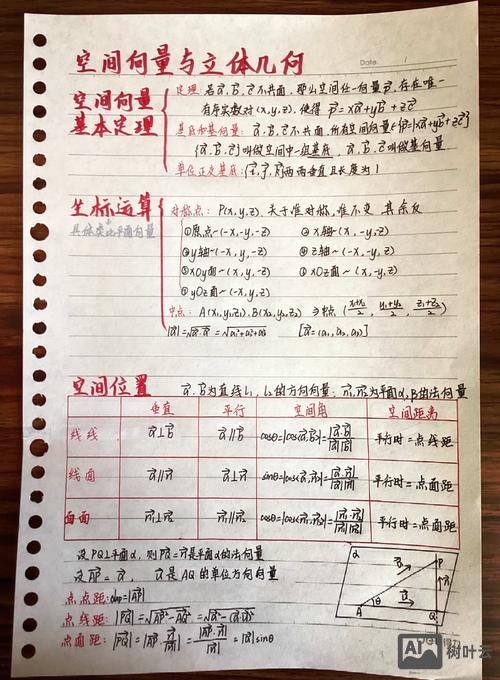 空间向量与立体几何
Date. /
空间向量
基本定理
定理：若a⃗,b⃗,c⃗不共面，那么空间任一向量p⃗,存在唯一
有序实数对(x,y,z),使得 p⃗=xa⃗+yb⃗+zc⃗
基底和基向量：a⃗,b⃗,c⃗不共面,所有空间向量{p⃗|p⃗=xa⃗+yb⃗+zc⃗}
{a⃗,b⃗,c⃗}叫做空间中一组基底，a⃗,b⃗,c⃗叫做基向量
单位正交基底:{i⃗,j⃗,k⃗}两两垂直且长度为1
坐标运算
具体类比平面向量
对称点：P(x,y,z).关于谁对称,谁不变 其余反
①原点~(-x,-y,-z) ②x轴~(x,-y,-z)
③y轴~(-x,y,-z) ④z轴~(-x,-y,z)
⑤xOy面~(x,y,-z) ⑥xOz面~(x,-y,z)
⑦yOz面~(-x,y,z)
中点：A(x₁,y₁,z₁).B(x₂,y₂,z₂) ⇒中点 (x₁+x₂/2, y₁+y₂/2, z₁+z₂/2)
|a⃗|=√a⃗·a⃗=√a₁²+a₂²+a₃² [a⃗=(a₁,a₂,a₃)]
空间位置 a⃗,b⃗为直线l₁,l₂的方向向量；n⃗₁,n⃗₂为平面α,β的法向量
垂直 平行 空间角 空间距离
线线 a⃗⊥b⃗ a⃗∥b⃗ cosθ=|cos⟨a⃗,b⃗⟩|=|a⃗·b⃗|/|a⃗||b⃗| 平行时=点线距
线面 a⃗∥n⃗ a⃗⊥n⃗ sinθ=|cos⟨a⃗,n⃗⟩|=|a⃗·n⃗|/|a⃗||n⃗| 平行时=点面距
面面 n⃗₁⊥n⃗₂ n⃗₁∥n⃗₂ cosθ=|cos⟨n⃗₁,n⃗₂⟩|=|n⃗₁·n⃗₂|/|n⃗₁||n⃗₂| 平行时=点面距
设PQ⊥平面α,则PQ⃗=n⃗是平面α的法向量
设AP⃗=a⃗, u⃗是AQ的单位方向向量
点点距:dAP=|AP⃗|
点线距：|PQ⃗|=√AP⃗²-AQ⃗²=√a⃗²-(a⃗·u⃗)²
点面距：|PQ⃗|=|AP⃗·n⃗/|n⃗||=|AP⃗·n⃗|/|n⃗|=|a⃗|sinθ
α P a⃗ n⃗ A θ u⃗ Q
AI 树叶云